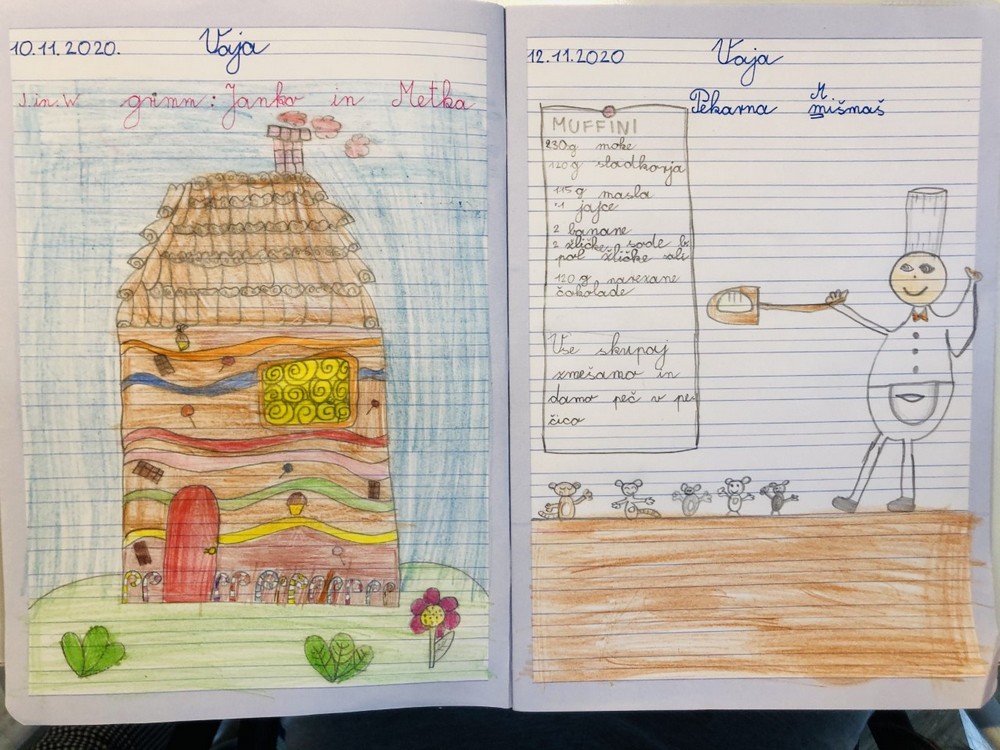 10.11.2020. Vaja
J. in. W grimm: Janko in Metka
12.11.2020 Vaja
Pekarna Mišmaš
MUFFINI
230g moke
120g sladkorja
115g masla
1 jajce
2 banane
2 žličke sode bi
pol žličke soli
120 g narezane
čokolade
Vse skupaj
zmešamo in
damo peč v pe
čico